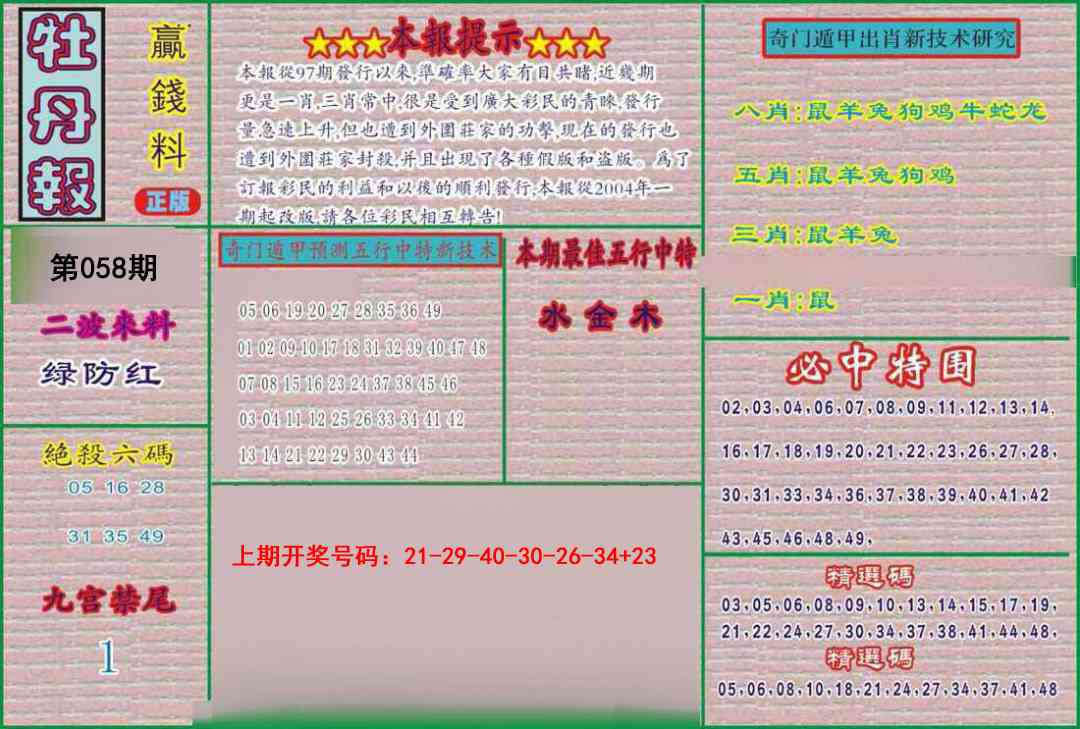 牡丹報
贏錢料
正版
第058期
二波來料
绿防红
絶殺六碼
05 16 28
31 35 49
九宫禁尾
1
★★★本報提示★★★
本報從97期發行以來,準確率大家有目共睹,近幾期
更是一肖,三肖常中,很是受到廣大彩民的青睞,發行
量急速上升,但也遭到外圍莊家的功擊,現在的發行也
遭到外圍莊家封殺,并且出現了各種假版和盗版。爲了
訂報彩民的利益和以後的順利發行,本報從2004年一
期起改版,請各位彩民相互轉告!
奇门遁甲预测五行中特新技术
05 06 19 20 27 28 35 36 49
01 02 09 10 17 18 31 32 39 40 47 48
07 08 15 16 23 24 37 38 45 46
03 04 11 12 25 26 33 34 41 42
13 14 21 22 29 30 43 44
本期最佳五行中特
水金木
上期开奖号码：21-29-40-30-26-34+23
奇门遁甲出肖新技术研究
八肖:鼠羊兔狗鸡牛蛇龙
五肖:鼠羊兔狗鸡
三肖:鼠羊兔
一肖:鼠
必中特围
02,03,04,06,07,08,09,11,12,13,14,
16,17,18,19,20,21,22,23,26,27,28,
30,31,33,34,36,37,38,39,40,41,42
43,45,46,48,49,
精選碼
03,05,06,08,09,10,13,14,15,17,19,
21,22,24,27,30,34,37,38,41,44,48,
精選碼
05,06,08,10,18,21,24,27,34,37,41,48